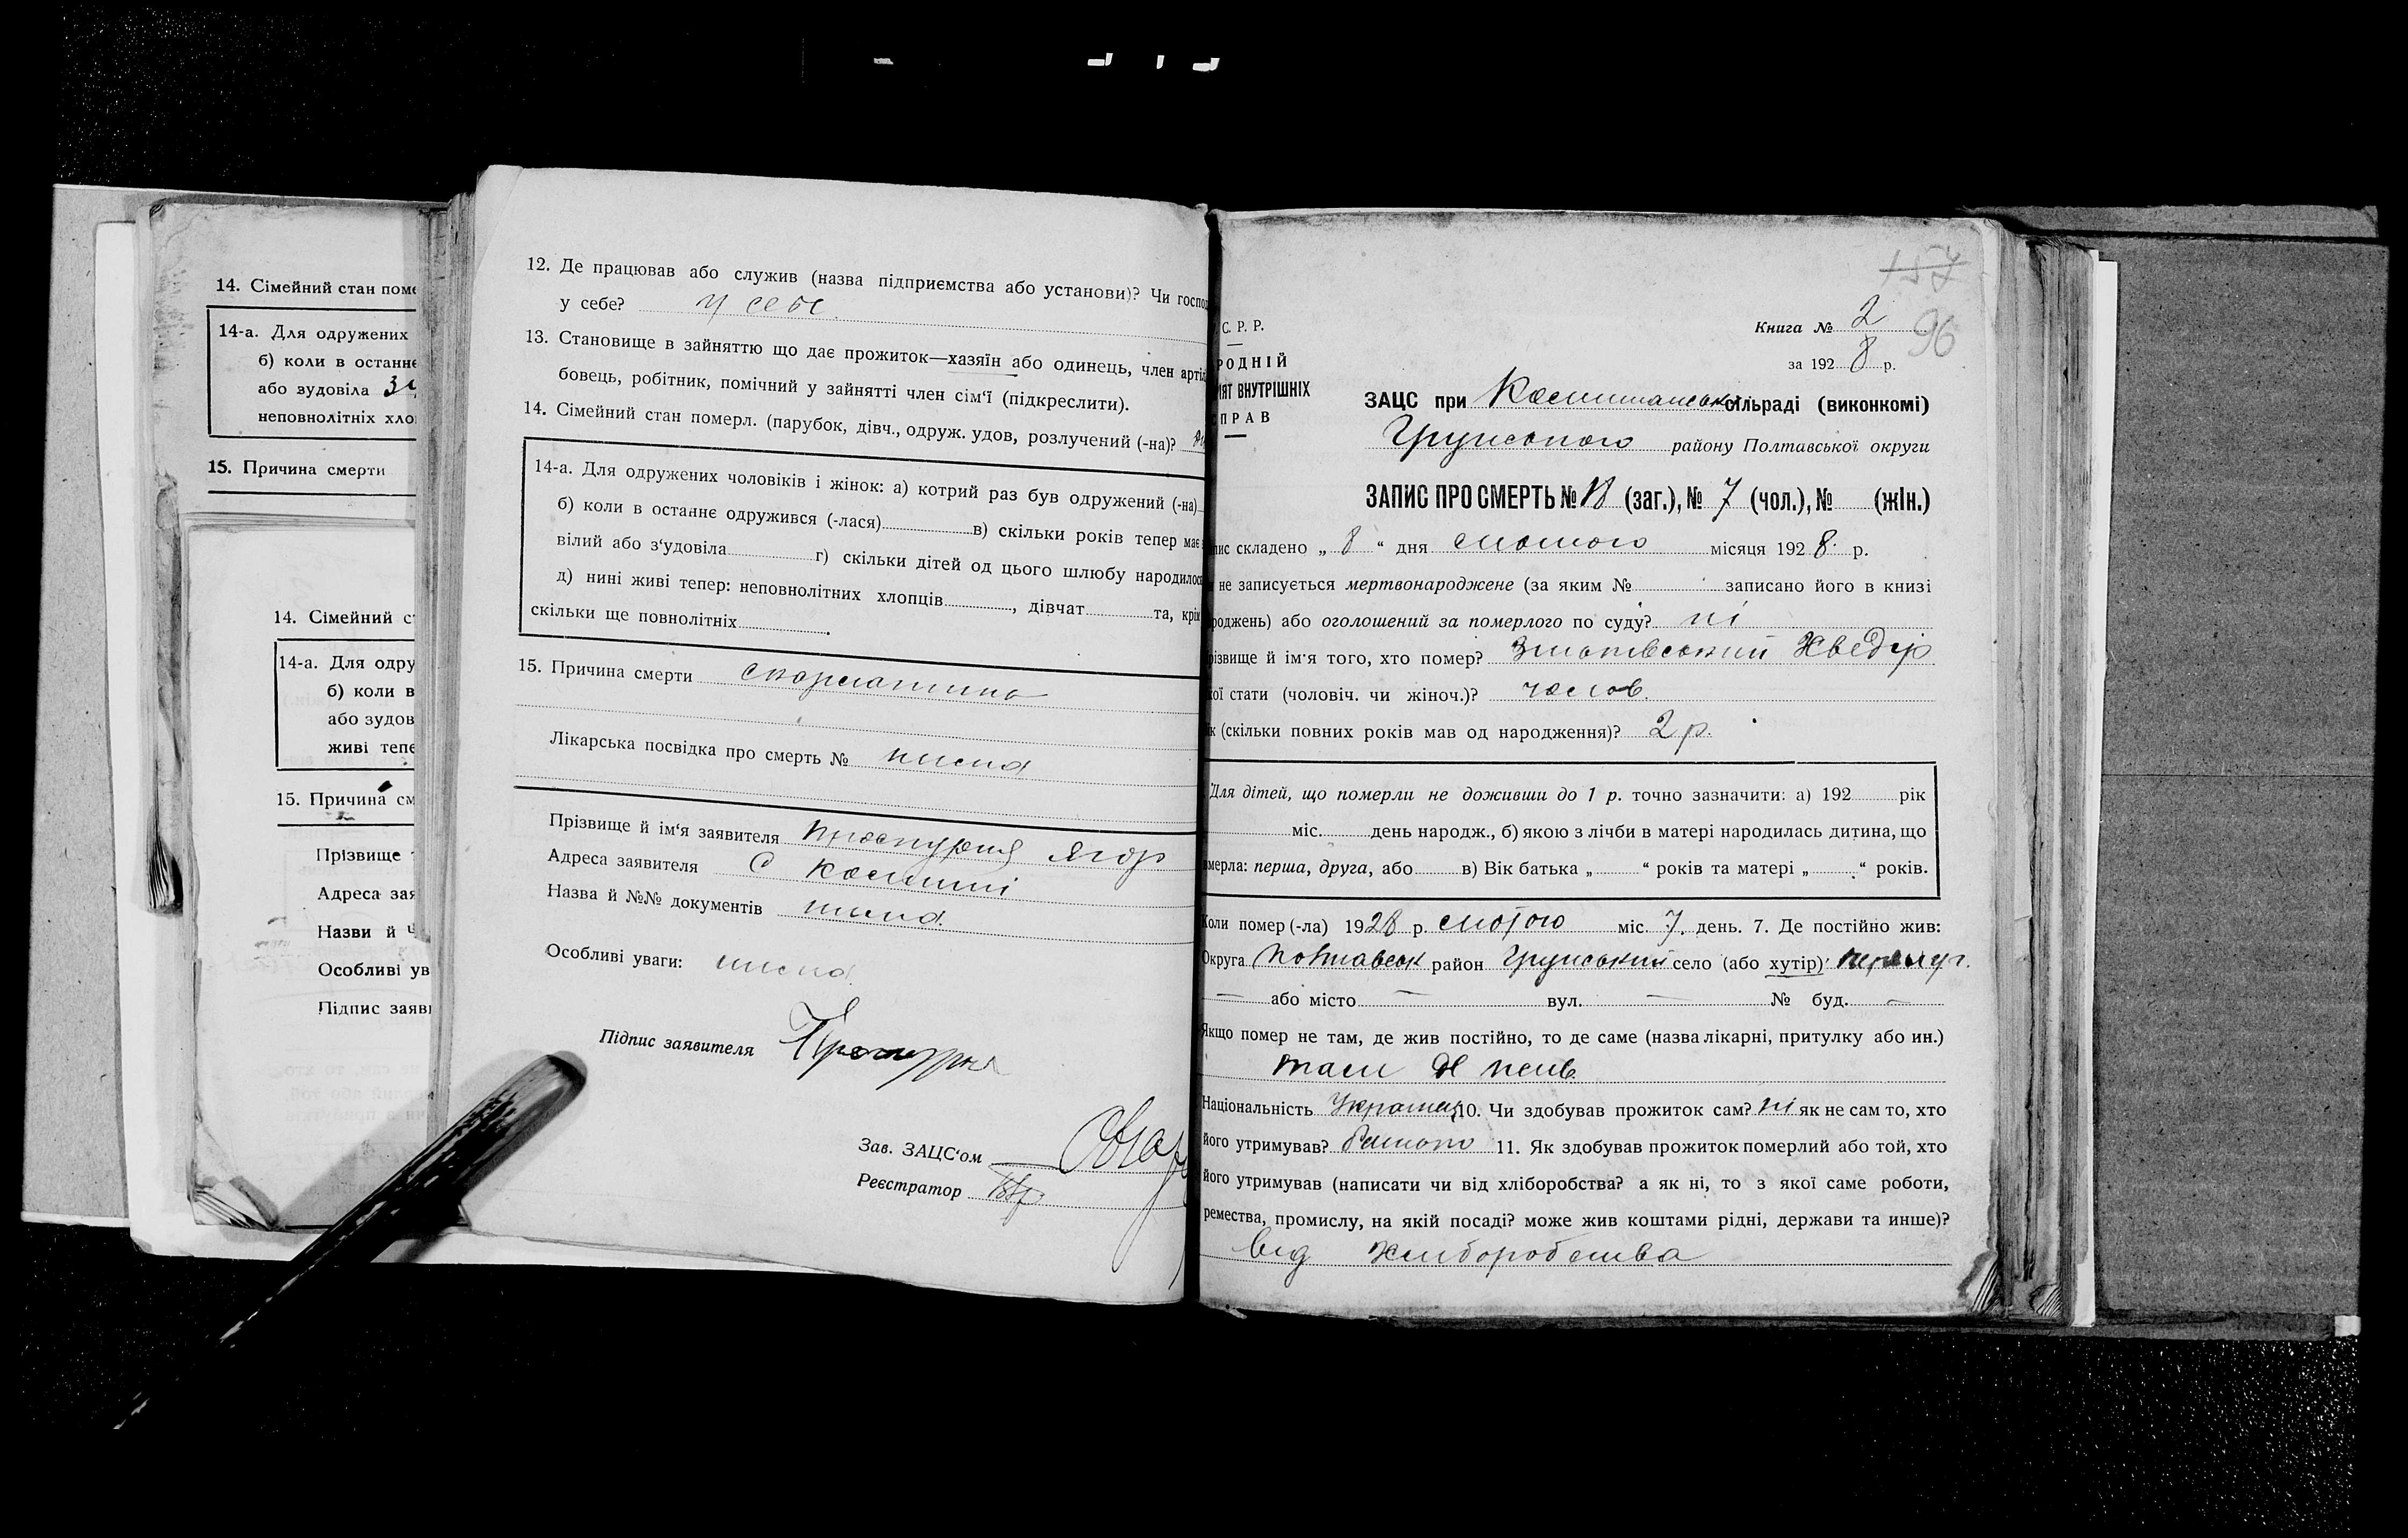 14. Сімейний стан поме
14-а. Для одружених
б) коли в останнє
або зудовіла
неповнолітніх хло
15. Причина смерти
14. Сімейний ст
14-а. Для одру
б) коли в
або зудов
живі тепе
15. Причина см
Прізвище
Адреса зая
Назви й
Особливі ув
Підпис заяв
12. Де працював або служив (назва підприємства або установи)? Чи госпо
у себе? у себе.
13. Становище в зайняттю що дає прожиток—хазяїн або одинець, член арті
бовець, робітник, помічний у зайнятті член сім'ї (підкреслити).
14. Сімейний стан померл. (парубок, дівч., одруж. удов, розлучений (-на)?
14-а. Для одружених чоловіків і жінок: а) котрий раз був одружений (-на)
б) коли в останнє одружився (-лася) в) скільки років тепер має
вілий або з'удовіла г) скільки дітей од цього шлюбу народилос
д) нині живі тепер: неповнолітних хлопців, дівчат та, крім
скільки ще повнолітніх.
15. Причина смерти скарлатина
Лікарська посвідка про смерть № нима
Прізвище й ім'я заявителя Проскурня Ягор
Адреса заявителя С
Назва й №№ документів нима.
Особливі уваги: нима
Підпис заявителя Проскурня
Зав. ЗАЦС'ом
Реєстратор
157
Книга № 2
96
за 192 8 р.
С. Р. Р.
РОДНІЙ
ІЯТ ВНУТРІШНІХ
СПРАВ
ЗАЦС при сільраді (виконкомі)
Грунського району Полтавської округи
ЗАПИС ПРО СМЕРТЬ № (заг.), № 7 (чол.), № (жін.)
пис складено „ 8 “ дня лютого місяця 192 8. р.
не записується мертвонароджене (за яким № записано його в книзі
роджень) або оголошений за померлого по суду? ні
різвище й ім'я того, хто помер? Хведір
кої стати (чоловіч. чи жіноч.)? чолов.
ік (скільки повних років мав од народження)? 2 р.
Для дітей, що померли не доживши до 1 р. точно зазначити: а) 192 рік
міс. день народж., б) якою з лічби в матері народилась дитина, що
вмерла: перша, друга, або в) Вік батька „ “ років та матері „ “ років.
Коли помер (-ла) 1928 р. лютого міс. 7. день. 7. Де постійно жив:
Округа Полтавськ район Грунський село (або хутір)
— або місто — вул. — № буд. —
Якщо помер не там, де жив постійно, то де саме (назва лікарні, притулку або ин.)
там
Національність Українец 10. Чи здобував прожиток сам? ні як не сам то, хто
його утримував? батько 11. Як здобував прожиток померлий або той, хто
його утримував (написати чи від хліборобства? а як ні, то з якої саме роботи,
ремества, промислу, на якій посаді? може жив коштами рідні, держави та инше)?
Від хлиборобства